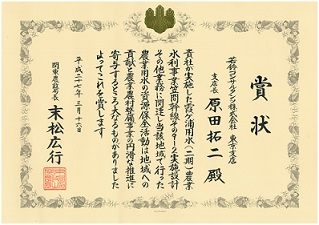 賞状
若鈴コンサルタンツ株式会社 東京支店
支店長 原田拓二 殿
貴社が実施した霞ヶ浦用水(二期)農業
水利事業笠間幹線その9-2実施設計
その他業務に関連し当該地域で行った
農業用水の資源保全活動は地域への
貢献と農業農村整備事業の円滑な推進に
寄与するところ大なるものがありました
よってこれを賞します
平成二十七年三月十六日
関東農政局長
末松広行